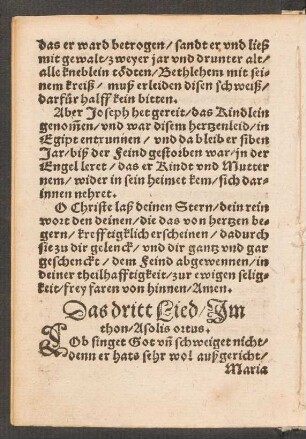 das er ward betrogen / sandt er vnd ließ
mit gewalt / zweyer jar vnd drunter alt /
alle kneblein tödten / Bethlehem mit sei-
nem kreiß / muß erleiden disen schweiß /
darfür halff kein bitten.
Aber Joseph het gereit / das Kindlein
genom̄en / vnd war disem hertzenleid / in
Egipt entrunnen / vnd da bleib er siben
Jar / biß der Feind gestorben war / jn der
Engel leret / das er Kindt vnd Mutter
nem / wider in sein heimet kem / sich dar-
innen nehret.
O Christe laß deinen Stern / dein rein
wort den deinen / die das von hertzen be-
gern / krefftigklich erscheinen / dadurch
sie zu dir gelenck / vnd dir gantz vnd gar
geschenckt / dem Feind abgewennen / in
deiner theilhafftigkeit / zur ewigen selig-
keit / frey faren von hinnen / Amen.
Das dritt Lied / Im
thon / Asolis ortus.
LOb singet Got vn̄ schweiget nicht /
denn er hats sehr wol außgericht /
Maria